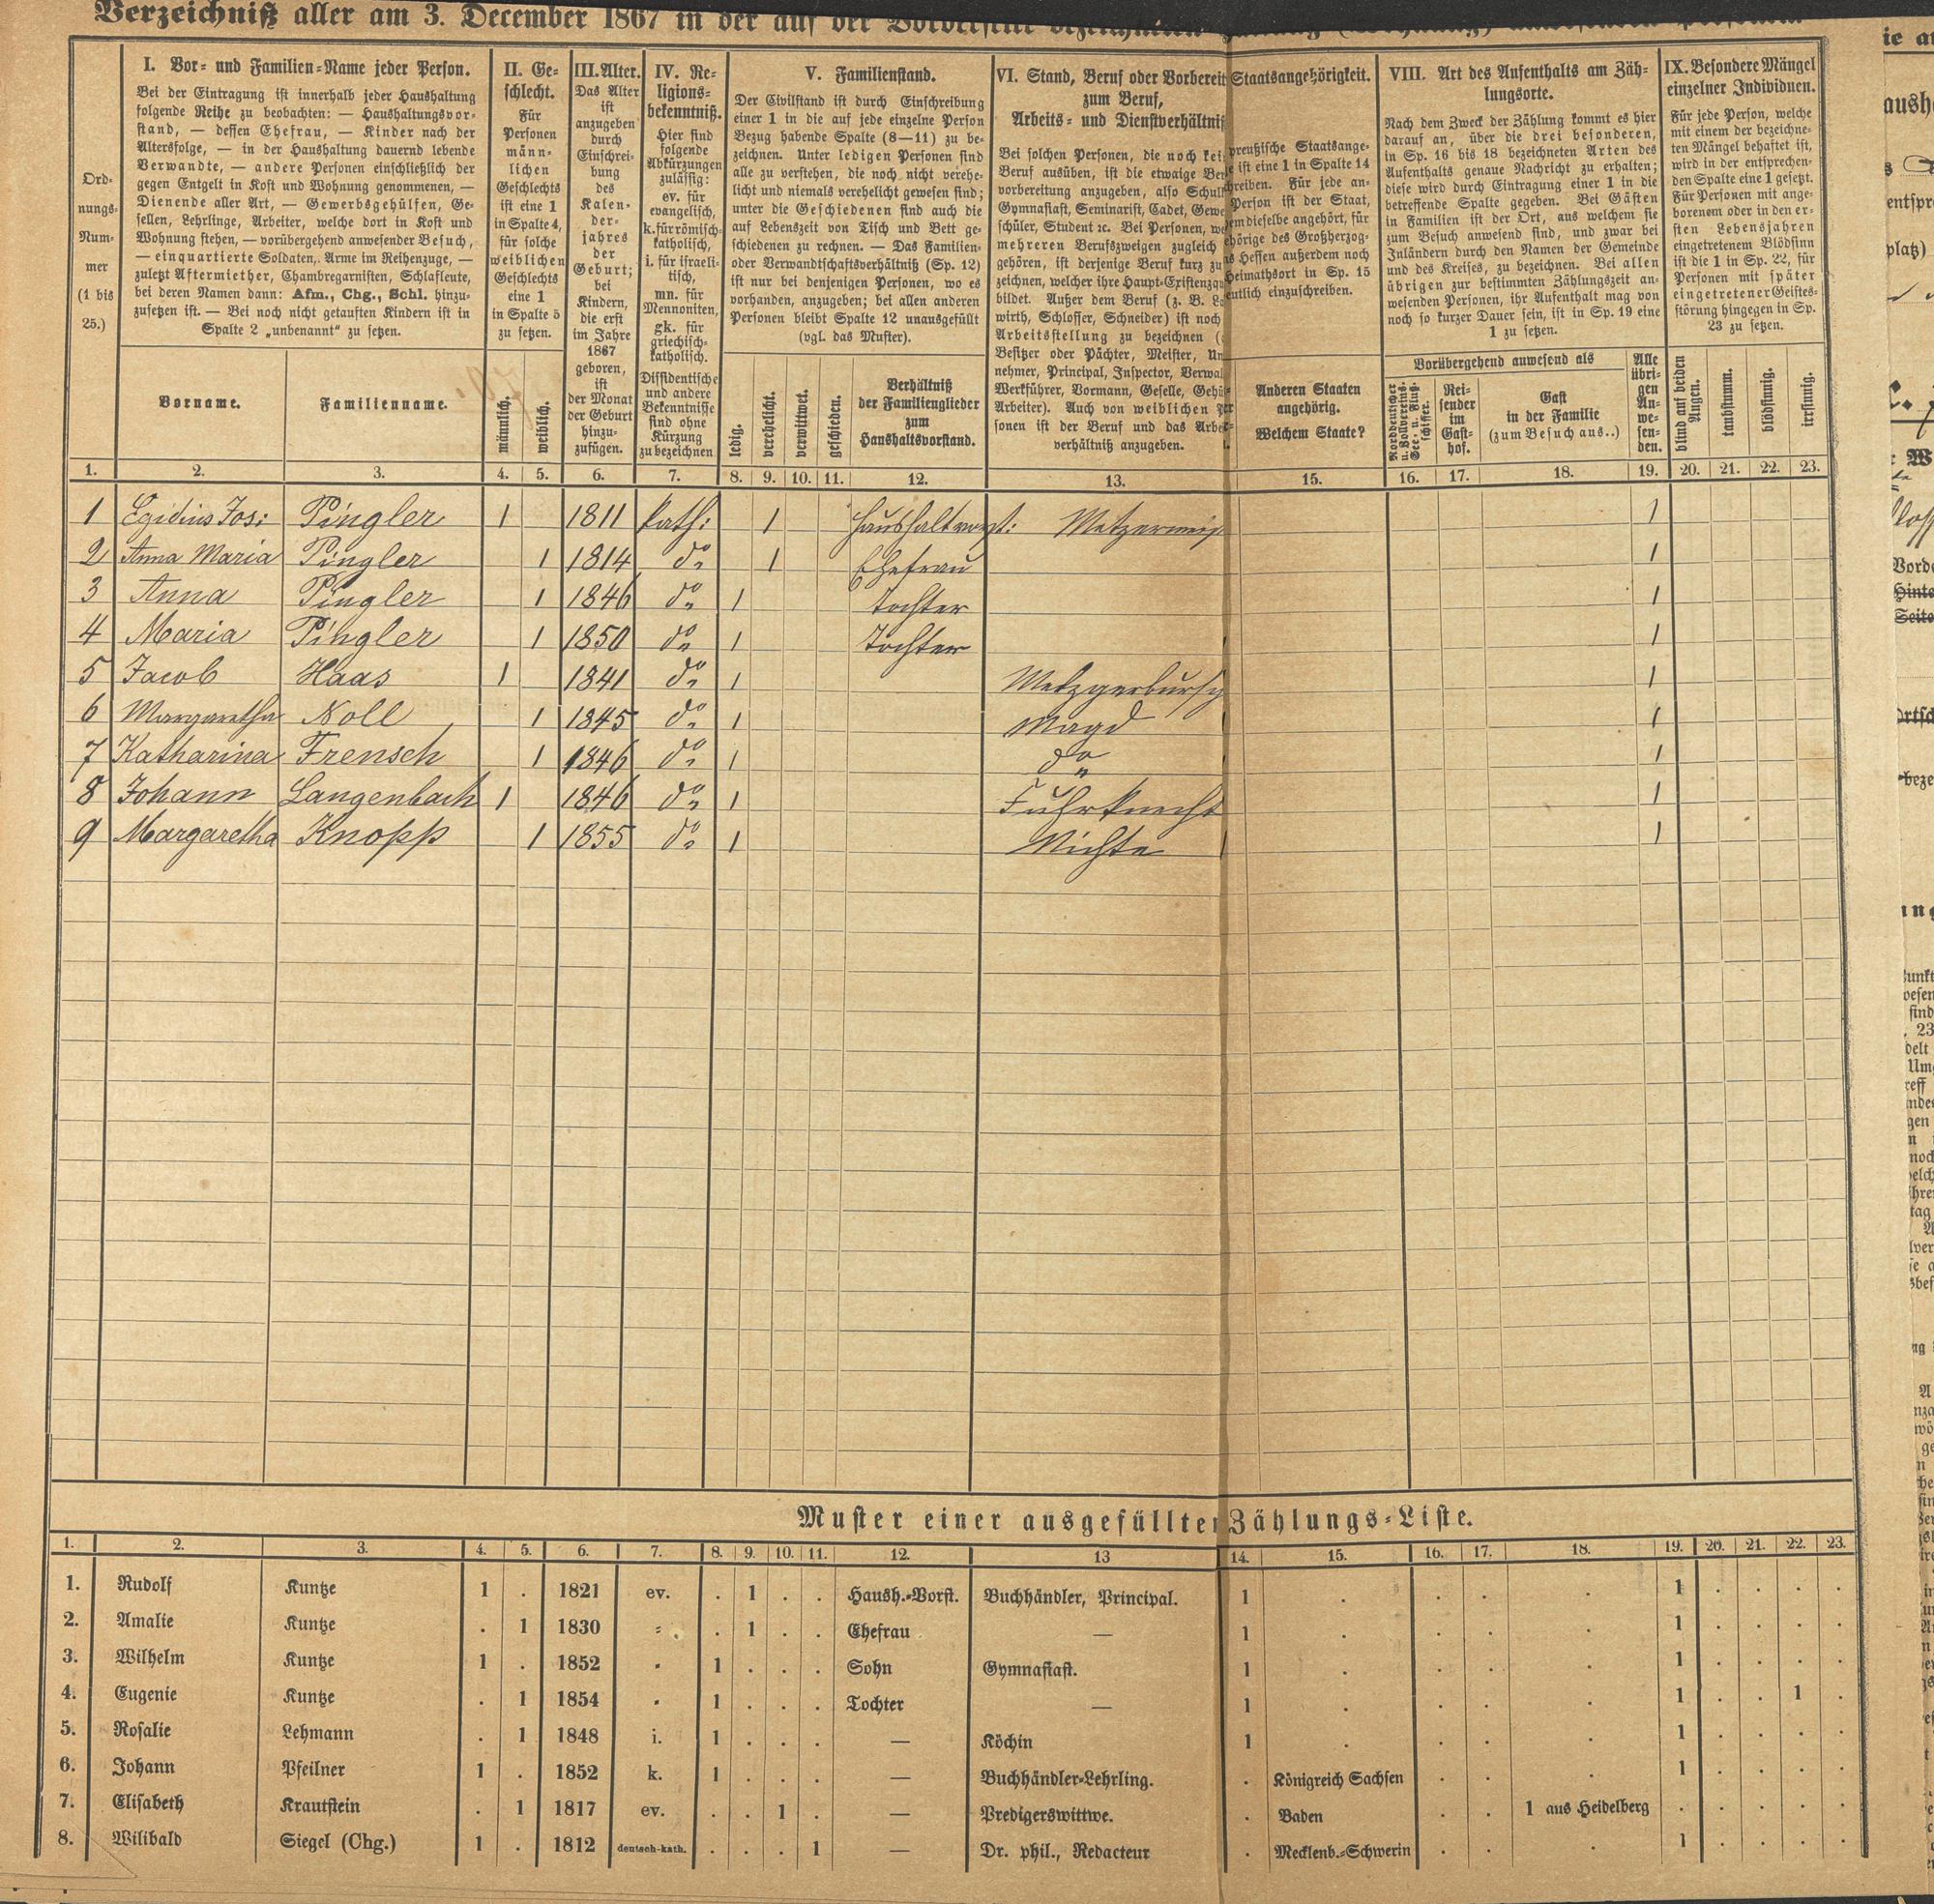 Verzeichniß aller am 3. December 1867 in der auf der Vorderseite
I. Vor- und Familien-Name jeder Person.
Bei der Eintragung ist innerhalb jeder Haushaltung
folgende Reihe zu beobachten: — Haushaltungsvor-
stand, — dessen Ehefrau, — Kinder nach der
Altersfolge, — in der Haushaltung dauernd lebende
Verwandte, — andere Personen einschließlich der
gegen Entgelt in Kost und Wohnung genommenen, —
Dienende aller Art, — Gewerbsgehülfen, Ge-
sellen, Lehrlinge, Arbeiter, welche dort in Kost und
Wohnung stehen, — vorübergehend anwesender Besuch,
— einquartierte Soldaten, Arme im Reihenzuge, —
zuletzt Aftermiether, Chambregarnisten, Schlafleute,
bei deren Namen dann: Afm., Chg., Schl. hinzu-
zusetzen ist. — Bei noch nicht getauften Kindern ist in
Spalte 2 „unbenannt“ zu setzen.
Ord-
nungs-
Num-
mer
(1 bis
25.)
Vorname.
Familienname.
II. Ge-
schlecht.
Für
Personen
männ-
lichen
Geschlechts
ist eine 1
in Spalte 4,
für solche
weiblichen
Geschlechts
eine 1
in Spalte 5
zu setzen.
männlich.
weiblich.
III. Alter.
Das Alter
ist
anzugeben
durch
Einschrei-
bung
des
Kalen-
der-
jahres
der
Geburt;
bei
Kindern,
die erst
im Jahre
1867
geboren,
ist
der Monat
der Geburt
hinzu-
zufügen.
IV. Re-
ligions-
bekenntniß.
Hier sind
folgende
Abkürzungen
zulässig:
ev. für
evangelisch,
k. für römisch-
katholisch,
i. für israeli-
tisch,
mn. für
Mennoniten,
gk. für
griechisch-
katholisch.
Dissidentische
und andere
Bekenntnisse
sind ohne
Kürzung
zu bezeichnen
V. Familienstand.
Der Civilstand ist durch Einschreibung
einer 1 in die auf jede einzelne Person
Bezug habende Spalte (8—11) zu be-
zeichnen. Unter ledigen Personen sind
alle zu verstehen, die noch nicht verehe-
licht und niemals verehelicht gewesen sind;
unter die Geschiedenen sind auch die
auf Lebenszeit von Tisch und Bett ge-
schiedenen zu rechnen. — Das Familien-
oder Verwandtschaftsverhältniß (Sp. 12)
ist nur bei denjenigen Personen, wo es
vorhanden, anzugeben; bei allen anderen
Personen bleibt Spalte 12 unausgefüllt
(vgl. das Muster).
ledig.
verehelicht.
verwittwet.
geschieden.
Verhältniß
der Familienglieder
zum
Haushaltsvorstand.
VI. Stand, Beruf oder Vorbereit
zum Beruf,
Arbeits- und Dienstverhältniß
Bei solchen Personen, die noch kei
Beruf ausüben, ist die etwaige Ber
vorbereitung anzugeben, also Schul
Gymnasiast, Seminarist, Cadet, Gewe
schüler, Student ꝛc. Bei Personen, we
mehreren Berufszweigen zugleich
gehören, ist derjenige Beruf kurz zu
zeichnen, welcher ihre Haupt-Existenzqu
bildet. Außer dem Beruf (z. B. L
wirth, Schlosser, Schneider) ist noch
Arbeitsstellung zu bezeichnen (
Besitzer oder Pächter, Meister, Un
nehmer, Principal, Inspector, Verwal
Werkführer, Vormann, Geselle, Gehü
Arbeiter). Auch von weiblichen Per
sonen ist der Beruf und das Arbe
verhältniß anzugeben.
Staatsangehörigkeit.
preußische Staatsange-
ist eine 1 in Spalte 14
hreiben. Für jede an-
Person ist der Staat,
em dieselbe angehört, für
hörige des Großherzog-
s Hessen außerdem noch
Heimathsort in Sp. 15
eutlich einzuschreiben.
Anderen Staaten
angehörig.
Welchem Staate?
VIII. Art des Aufenthalts am Zäh-
lungsorte.
Nach dem Zweck der Zählung kommt es hier
darauf an, über die drei besonderen,
in Sp. 16 bis 18 bezeichneten Arten des
Aufenthalts genaue Nachricht zu erhalten;
diese wird durch Eintragung einer 1 in die
betreffende Spalte gegeben. Bei Gästen
in Familien ist der Ort, aus welchem sie
zum Besuch anwesend sind, und zwar bei
Inländern durch den Namen der Gemeinde
und des Kreises, zu bezeichnen. Bei allen
übrigen zur bestimmten Zählungszeit an-
wesenden Personen, ihr Aufenthalt mag von
noch so kurzer Dauer sein, ist in Sp. 19 eine
1 zu setzen.
Vorübergehend anwesend als
Norddeutscher
u. Vollvereins-
See- u. Fluß-
schiffer.
Rei-
sender
im
Gast-
hof.
Gast
in der Familie
(zum Besuch aus..)
Alle
übri-
gen
An-
we-
sen-
den.
IX. Besondere Mängel
einzelner Individuen.
Für jede Person, welche
mit einem der bezeichne-
ten Mängel behaftet ist,
wird in der entsprechen-
den Spalte eine 1 gesetzt.
Für Personen mit ange-
borenem oder in den er-
sten Lebensjahren
eingetretenem Blödsinn
ist die 1 in Sp. 22, für
Personen mit später
eingetretener Geistes-
störung hingegen in Sp.
23 zu setzen.
blind auf beiden
Augen.
taubstumm.
blödsinnig.
irrsinnig.
1. 2. 3. 4. 5. 6. 7. 8. 9. 10. 11. 12. 13. 15. 16. 17. 18. 19. 20. 21. 22. 23.
1 Egidius Jos: Pingler 1 1811 kath: 1 Haushaltvorst: Metzermeis 1
2 Anna Maria Pingler 1 1814 do 1 Ehefrau 1
3 Anna Pingler 1 1846 do 1 Tochter 1
4 Maria Pingler 1 1850 do 1 Tochter 1
5 Jacob Haas 1 1841 do 1 Metzgerbursch 1
6 Margaretha Noll 1 1845 do 1 Magd 1
7 Katharina Frensch 1 1846 do 1 do 1
8 Johann Langenbach 1 1846 do 1 Fuhrknecht 1
9 Margaretha Knopp 1 1855 do 1 Nichte 1
Muster einer ausgefüllten Zählungs-Liste.
1. 2. 3. 4. 5. 6. 7. 8. 9. 10. 11. 12. 13 14. 15. 16. 17. 18. 19. 20. 21. 22. 23.
1. Rudolf Kuntze 1 . 1821 ev. . 1 . . Haush.-Vorst. Buchhändler, Principal. 1 . . . . 1 . . . .
2. Amalie Kuntze . 1 1830 = . 1 . . Ehefrau — 1 . . . . 1 . . . .
3. Wilhelm Kuntze 1 . 1852 " 1 . . . Sohn Gymnasiast. 1 . . . . 1 . . . .
4. Eugenie Kuntze . 1 1854 " 1 . . . Tochter — 1 . . . . 1 . . 1 .
5. Rosalie Lehmann . 1 1848 i. 1 . . . — Köchin 1 . . . . 1 . . . .
6. Johann Pfeilner 1 . 1852 k. 1 . . . — Buchhändler-Lehrling. . Königreich Sachsen . . . 1 . . . .
7. Elisabeth Krautstein . 1 1817 ev. . . 1 . — Predigerswittwe. . Baden . . 1 aus Heidelberg . . . . .
8. Wilibald Siegel (Chg.) 1 . 1812 deutsch-kath. . . . 1 — Dr. phil., Redacteur . Mecklenb.-Schwerin . . . 1 . . . .